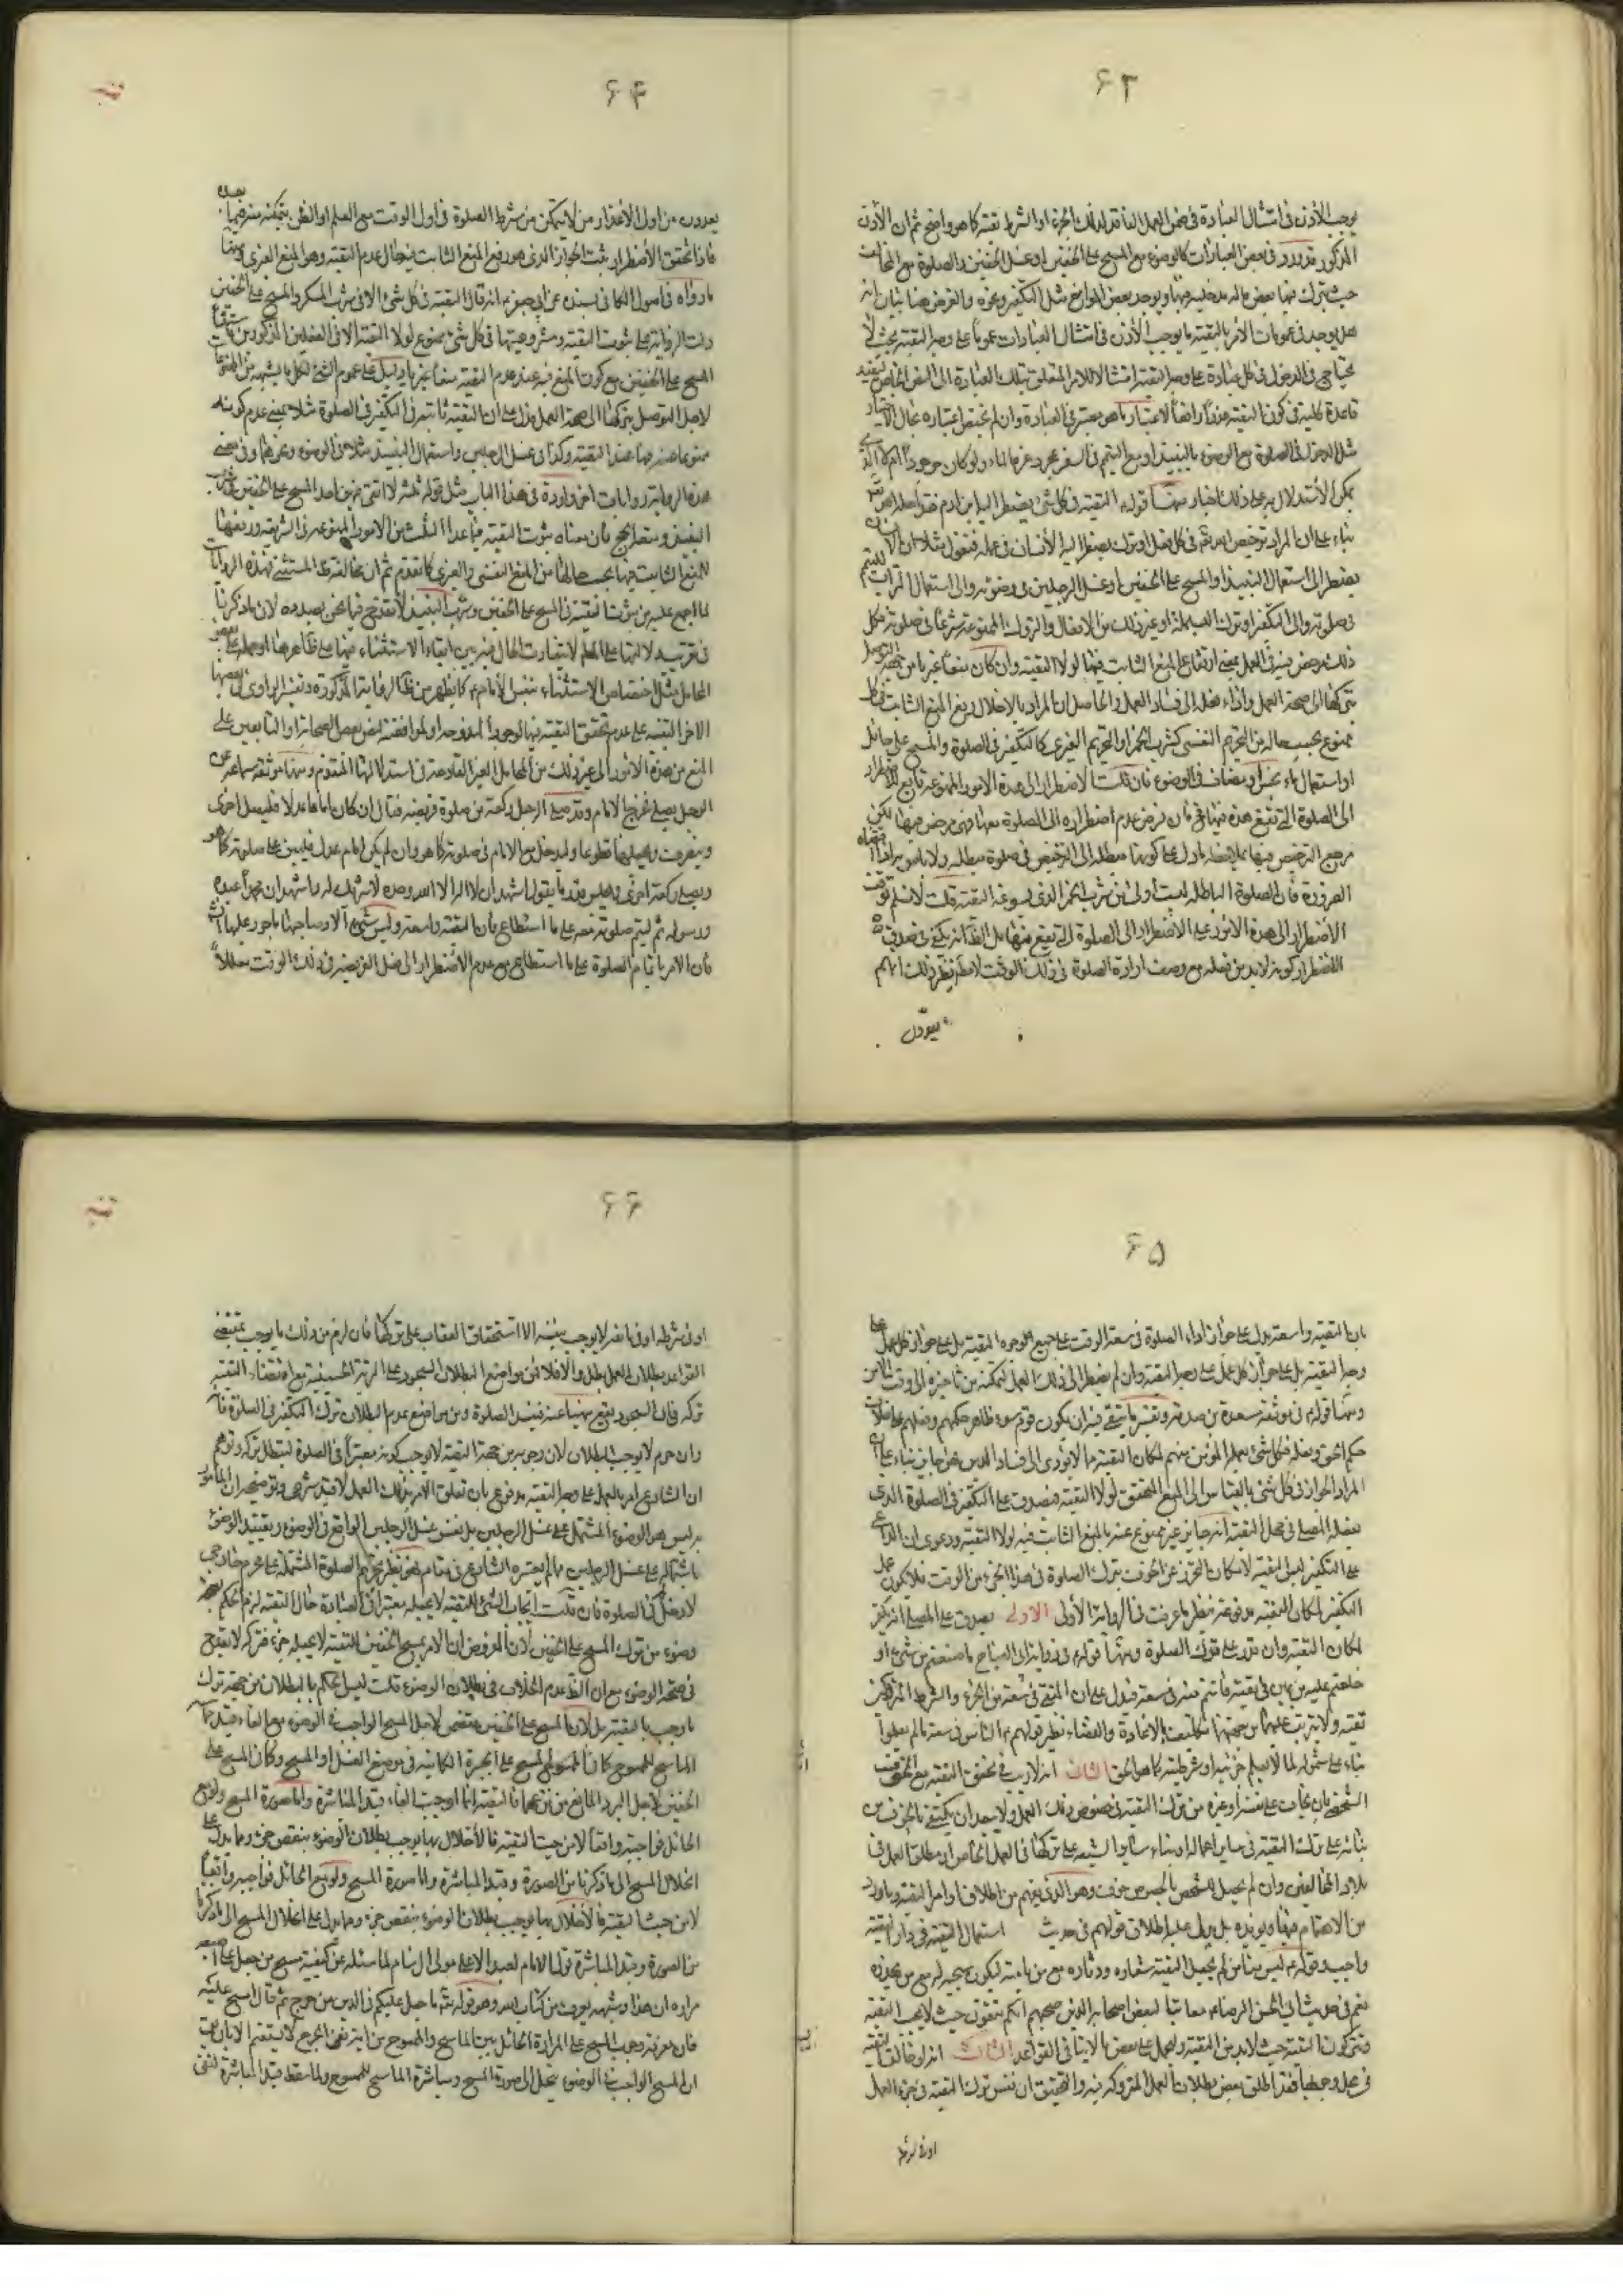 ۶۳
يوجب الأذن في امتثال العبادة في ضمن العمل الفاقد لذلك الجزء او الشرط تقية كما هو واضح ثم ان الأذن
المذكور قد ورد في بعض العبادات كالوضوء مع المسح على الخفين او غسل الخفين والصلوة مع المخالف
حيث يترك فيها بعض ماله مدخلية فيها ويوجد بعض الموانع مثل التكفير ونحوه والغرض هنا بيان انه
هل يوجد في عمومات الأمر بالتقية ما يوجب الأذن في امتثال العبادات عموما على وجه التقية بحيث لا
يحتاج في الدخول في كل عبادة على وجه التقية امتثالا للامر المتعلق بتلك العبادة الى النص الخاص ليفيد
قاعدة كلية في كون التقية عذرا رافعا لاعتبار ما هو معتبر في العبادة وان لم يختص اعتباره بحال الاختيار
مثل الدخول في الصلوة مع الوضوء بالنبيذ او مع التيمم في السفر بمجرد عزة الماء ولو كان موجودا ام لا الذي
يمكن الأستدلال به على ذلك اخبار منها قوله التقية في كل شئ يضطر اليه ابن ادم فقد أحله الله
بناء على ان المراد ترخيص الله في كل فعل او ترك يضطر اليه الأنسان في عمله فنقول مثلا ان الانسان
يضطر الى استعمال النبيذ او المسح على الخفين او غسل الرجلين في وضوئه والى استعمال التراب للتيمم
في صلوته والى التكفير وترك البسملة وغير ذلك من الافعال والتروك الممنوعة شرعا في صلوته فكل
ذلك مرخص فيه في العمل بمعنى ارتفاع المنع الثابت فيها لولا التقية وان كان منعا غيريا من جهة التوصل
بتركها الى صحة العمل واداء فعله الى فساد العمل والحاصل ان المراد بالاحلال رفع المنع الثابت في كل
ممنوع بحسب حاله من التحريم النفسي كشرب الخمر او التحريم الغيري كالتكفير في الصلوة والمسح على حائل
او استعمال ماء نجس او مضاف في الوضوء فان قلت الاضطرار الى هذه الامور الممنوعة تابع للاضطرار
الى الصلوة التي تقع هذه فيها فان فرض عدم اضطراره الى الصلوة معها فهي مرخص فيها لكن
مرجع الترخيص فيها بملاحظة ما دل على كونها مبطلة الى الترخيص في صلوة مبطلة ولا بأس به اذا اقتضاه
الضرورة فان الصلوة الباطلة ليست أولى من شرب الخمر الذي يسوغه التقية قلت لا نسلم توقف
الأضطرار الى هذه الأمور على الاضطرار الى الصلوة التي تقع فيها بل الظاهر انه يكفي في صدق
الاضطرار كونه لابد من فعله مع وصف ارادة الصلوة في ذلك الوقت لا مطلقا نظير ذلك انهم
يعدون
۶۴
تقية
يعدون من اول الأعذار من لا يتمكن من شرط الصلوة في اول الوقت مع العلم او الظن بتمكنه منه فيما بعده
فاذا تحقق الأضطرار ثبت الجواز الذي هو رفع المنع الثابت في حال عدم التقية وهو المنع الغيري ومنها
ما رواه في اصول الكافي بسنده عن ابي جعفر انه قال التقية في كل شئ الا في شرب المسكر والمسح على الخفين
دلت الرواية على ثبوت التقية ومشروعيتها في كل شئ ممنوع لولا التقية الا في الفعلين المذكورين فاستثناء
المسح على الخفين مع كون المنع فيه عند عدم التقية منعا غيريا دليل على عموم الشئ لكل ما يشبهه من الممنوعات
لاجل التوصل بتركها الى صحة العمل فدل على ان التقية ثابتة في التكفير في الصلوة مثلا بمعنى عدم كونه
ممنوعا عنه فيها عند التقية وكذا في غسل الرجلين واستعمال النبيذ مثلا في الوضوء ونحوهما وفي معنى
هذه الرواية روايات اخر واردة في هذا الباب مثل قوله ثلثة لا اتقي فيهن احدا المسح على الخفين وشرب
النبيذ ومتعة الحج فان معناه ثبوت التقية فيما عدا الثلث من الامور الممنوعة في الشريعة ورفعها
للمنع الثابت فيها بحسب حالها من المنع النفسي والغيري كما تقدم ثم ان مخالفة ظاهر المستثنى في هذه الروايات
لما اجمع عليه من ثبوت التقية في المسح على الخفين وشرب النبيذ لا تقدح فيما نحن بصدده لان ما ذكرنا
في تقريب دلالتها على المطلب لا يتفاوت الحال فيه بين ابقاء الاستثناء فيها على ظاهرها او حمله على بعض
المحامل مثل اختصاص الاستثناء بنفس الأمام كما يظهر من الرواية المذكورة وتفسير الراوي في بعضها
الاخر التنبيه على عدم تحقق التقية فيها لوجود المندوحة او لموافقة بعض الصحابة او التابعين على
المنع من هذه الأمور الى غير ذلك من المحامل الغير القادحة في استدلالنا المتقدم ومنها موثقة سماعة عن
الرجل يصلي فخرج الامام وقد صلى الرجل ركعة من صلوة فريضة فقال ان كان اماما عدلا فليصل اخرى
وينصرف ويجعلهما تطوعا وليدخل مع الامام في صلوته كما هو وان لم يكن امام عدل فليبن على صلوته كما هو
ويصلي ركعة اخرى ويجلس قدر ما يقول اشهد أن لا اله الا الله وحده لا شريك له واشهد ان محمدا عبده
ورسوله ثم ليتم صلوته معه على ما استطاع فان التقية واسعة وليس شئ الا وصاحبها مأجور عليها
فان الامر باتمام الصلوة على ما استطاع مع عدم الأضطرار الى فعل الفريضة في ذلك الوقت معللا
۶۵
بان التقية واسعة يدل على جواز اداء الصلوة في سعة الوقت على جميع وجوه التقية بل على جواز كل عمل على
وجه التقية وان لم يضطر الى ذلك العمل لتمكنه من تأخيره الى وقت الأمن
ومنها قوله في موثقة مسعدة بن صدقة وتفسير ما يتقى فيه ان يكون قوم سوء ظاهر حكمهم وفعلهم على خلاف
حكم الحق وفعله فكل شئ يعمله المؤمن بينهم لمكان التقية مما لا يؤدي الى فساد الدين فهو جايز بناء على ان
المراد الجواز في كل شئ بالقياس الى المنع المتحقق لولا التقية فيصدق على التكفير في الصلوة الذي
يفعله المصلي في محل التقية انه جايز غير ممنوع عنه بالمنع الثابت فيه لولا التقية ودعوى ان الداعي
على التكفير ليس التقية لامكان التحرز عن الخوف بترك الصلوة في هذا الجزء من الوقت فلا يكون عمل
التكفير لمكان التقية مدفوعة بنظير ما عرفت في الرواية الأولى الاولى يصدق على المصلي انه يكفر
لمكان التقية وان قدر على ترك الصلوة ومنها قوله في رواية ابي الصباح ما صنعتم من شئ او
حلفتم عليه من يمين في تقية فانتم منه في سعة فيدل على ان المتقي في سعة من الجزء والشرط المتروكين
تقية ولا يترتب عليهما من جهتهما تكليف بالاعادة والقضاء نظير قولهم الناس في سعة ما لم يعلموا
بناء على شموله لما لا يعلم جزئيته او شرطيته كما هو الحق الثاني انه لا ريب في تحقق التقية مع الخوف
الشخصي بان يخاف على نفسه او غيره من ترك التقية في خصوص ذلك العمل ولا يبعد ان يكتفى بالخوف من
بنائه على ترك التقية في ساير اعماله او بناء ساير الشيعة على تركها في العمل الخاص او مطلق العمل في
بلاد المخالفين وان لم يحصل للشخص بالخصوص خوف وهو الذي يفهم من اطلاق اوامر التقية وما ورد
من الاهتمام فيها ويؤيده بل يدل عليه اطلاق قولهم في حديث استعمال التقية في دار التقية
واجب وقوله ليس منا من لم يجعل التقية شعاره ودثاره مع من يأمنه ليكون سجيته مع من يحذره
نعم في حديث ابي الحسن الرضا معاتبا لبعض اصحابه الذين حجبهم انكم تتقون حيث لا يجب التقية
وتتركون التقية حيث لابد من التقية وليحمل على بعض ما لا ينافي القواعد الثالث انه لو خالف التقية
في محل وجوبها فقد اطلق بعض بطلان العمل المتروكة فيه والتحقيق ان نفس ترك التقية في جزء العمل
او في شرطه
۶۶
تقية
او في شرطه او في مانعه لا يوجب بنفسه الا استحقاق العقاب على تركها فان لزم من ذلك ما يوجب بمقتضى
القواعد بطلان العمل بطل والا فلا فمن مواضع البطلان السجود على التربة الحسينية مع اقتضاء التقية
تركه فان السجود يقع منهيا عنه فيفسد الصلوة ومن مواضع عدم البطلان ترك التكفير في الصلوة فانه
وان حرم لا يوجب البطلان لان وجوبه من جهة التقية لا يوجب كونه معتبرا في الصلوة لتبطل بتركه وتوهم
ان الشارع امر بالعمل على وجه التقية مدفوع بان تعلق الأمر بذلك العمل لا من حيث كونه
ليس هو الوضوء المشتمل على غسل الرجلين بل نفس غسل الرجلين الواقع في الوضوء وتقييد الوضوء
باشتماله على غسل الرجلين مما لم يعتبره الشارع في مقام نظير تحريم الصلوة المشتملة على محرم خارجي
لا دخل له في الصلوة فان قلت ايجاب الشئ للتقية لا يجعله معتبرا في العبادة حال التقية لزم الحكم بصحة
وضوء من ترك المسح على الخفين لان المفروض ان الامر بمسح الخفين للتقية لا يجعله جزء فتركه لا يقدح
في صحة الوضوء مع ان الظاهر عدم الخلاف في بطلان الوضوء قلت ليس الحكم بالبطلان من جهة ترك
ما وجب بالتقية بل لان المسح على الخفين متضمن لاصل المسح الواجب في الوضوء مع الغاء قيد مماسة
الماسح للممسوح كما في المسح على الجبيرة الكائنة في موضع الغسل او المسح وكما في المسح على
الخفين لاجل البرد المانع من نزعهما فالتقية انما اوجبت الغاء قيد المباشرة واما صورة المسح ولو مع
الحائل فواجبة واقعا لا من حيث التقية فالأخلال بها يوجب بطلان الوضوء بنقص جزء ومما يدل على
انحلال المسح الى ما ذكرنا من الصورة وقيد المباشرة واما صورة المسح ولو مع الحائل فواجبة واقعا
لا من حيث التقية فالأخلال بها يوجب بطلان الوضوء بنقص جزء ومما يدل على انحلال المسح الى ما ذكرنا
من الصورة وقيد المباشرة قول الامام لعبد الاعلى مولى آل سام لما سئله عن كيفية مسح من جعل على اصبعه
مرارة ان هذا وشبهه يعرف من كتاب الله وهو قوله تعالى ما جعل عليكم في الدين من حرج ثم قال امسح عليه
فان معرفة وجوب المسح على المرارة الحائلة بين الماسح والممسوح من آية نفي الحرج لا يستقيم الا بان يقال
ان المسح الواجب في الوضوء ينحل الى صورة المسح ومباشرة الماسح للممسوح ولما سقط قيد المباشرة لنفي